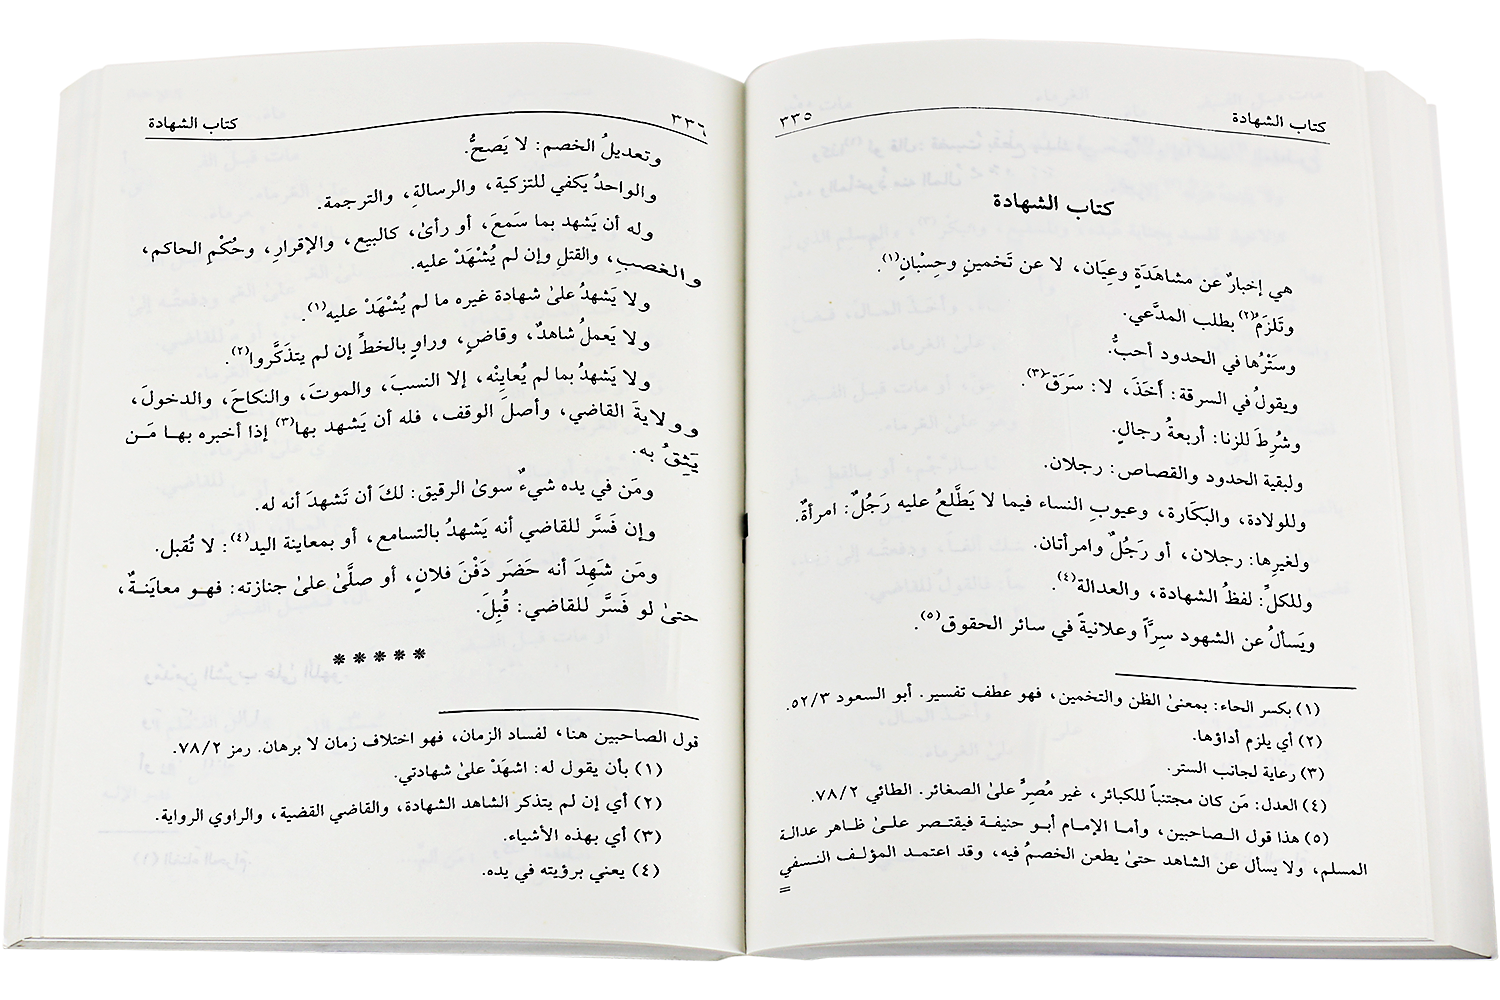 كتاب الشهادة ٣٣٥
كتاب الشهادة
هي إخبارٌ عن مشاهَدَةٍ وعِيَان، لا عن تَخمينٍ وحِسْبانٍ(١).
وتَلزَمُ(٢) بطلب المدَّعي.
وسَتْرُها في الحدود أحبُّ.
ويقولُ في السرقة: أَخَذَ، لا: سَرَقَ(٣).
وشُرِطَ للزنا: أربعةُ رجالٍ.
ولبقية الحدود والقصاص: رجلان.
وللولادة، والبكَارة، وعيوبِ النساء فيما لا يَطَّلعُ عليه رَجُلٌ: امرأةٌ.
ولغيرِها: رجلان، أو رَجُلٌ وامرأتان.
وللكلِّ: لفظُ الشهادة، والعدالة(٤).
ويَسألُ عن الشهود سِرَّاً وعلانيةً في سائر الحقوق(٥).
(١) بكسر الحاء: بمعنىٰ الظن والتخمين، فهو عطف تفسير. أبو السعود ٥٢/٣.
(٢) أي يلزم أداؤها.
(٣) رعاية لجانب الستر.
(٤) العدل: مَن كان مجتنباً للكبائر، غير مُصِرٍّ علىٰ الصغائر. الطائي ٧٨/٢.
(٥) هذا قول الصاحبين، وأما الإمام أبو حنيفة فيقتصر علىٰ ظاهر عدالة
المسلم، ولا يسأل عن الشاهد حتىٰ يطعن الخصمُ فيه، وقد اعتمد المؤلف النسفي
=
٣٣٦ كتاب الشهادة
وتعديلُ الخصم: لا يَصحُّ.
والواحدُ يكفي للتزكية، والرسالةِ، والترجمة.
وله أن يَشهد بما سَمعَ، أو رأىٰ، كالبيع، والإقرارِ، وحُكْمِ الحاكم،
والغصبِ، والقتلِ وإن لم يُشْهَدْ عليه.
ولا يَشهدُ علىٰ شهادة غيره ما لم يُشْهَدْ عليه(١).
ولا يَعملُ شاهدٌ، وقاضٍ، وراوٍ بالخطِّ إن لم يتذكَّروا(٢).
ولا يَشهدُ بما لم يُعاينْه، إلا النسبَ، والموتَ، والنكاحَ، والدخولَ،
وولايةَ القاضي، وأصلَ الوقف، فله أن يَشهد بها(٣) إذا أخبره بها مَن
يَثِقُ به.
ومَن في يده شيءٌ سوىٰ الرقيق: لكَ أن تَشهدَ أنه له.
وإن فَسَّر للقاضي أنه يَشهدُ بالتسامع، أو بمعاينة اليد(٤): لا تُقبل.
ومَن شَهِدَ أنه حَضَر دَفْنَ فلانٍ، أو صلَّىٰ علىٰ جنازته: فهو معايَنةٌ،
حتىٰ لو فَسَّر للقاضي: قُبِلَ.
*****
قول الصاحبين هنا، لفساد الزمان، فهو اختلاف زمان لا برهان. رمز ٧٨/٢.
(١) بأن يقول له: اشهَدْ علىٰ شهادتي.
(٢) أي إن لم يتذكر الشاهد الشهادة، والقاضي القضية، والراوي الرواية.
(٣) أي بهذه الأشياء.
(٤) يعني برؤيته في يده.